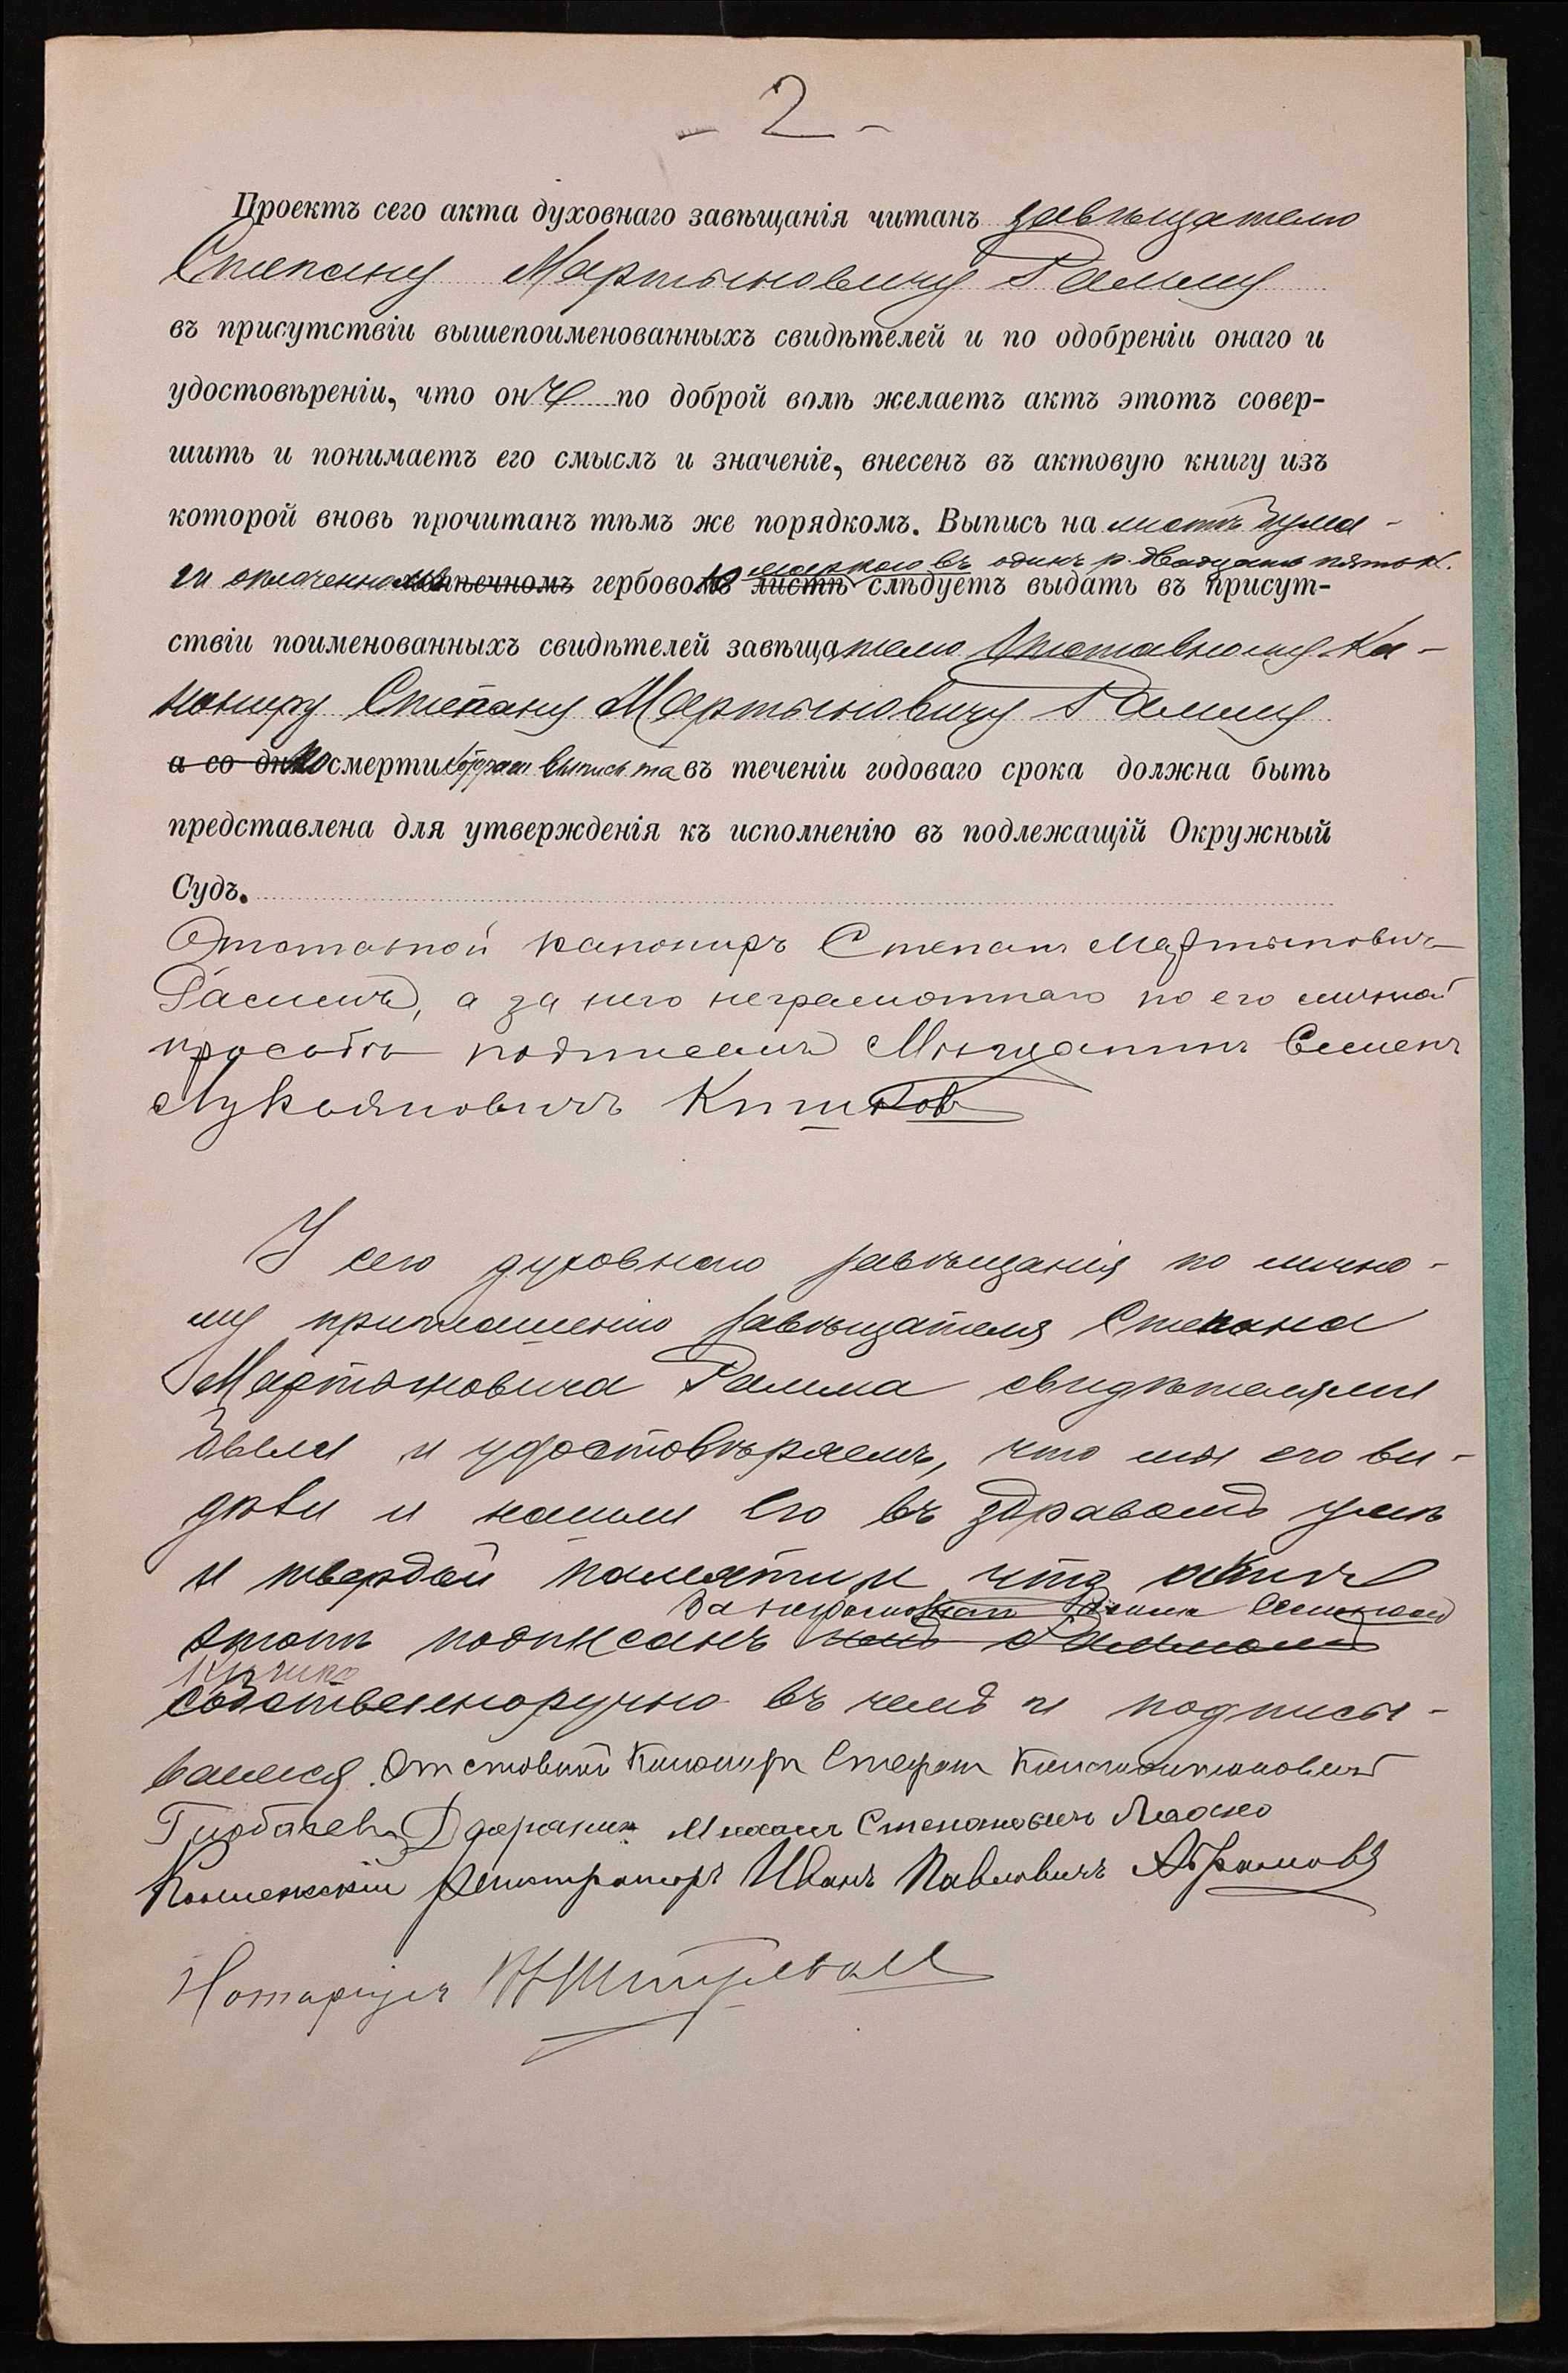 - 2 -
Проектъ сего акта духовнаго завѣщанія читанъ завѣщателю
Степану Мартыновичу Рамму
въ присутствіи вышепоименованныхъ свидѣтелей и по одобреніи онаго и
удостовѣреніи, что онъ по доброй волѣ желаетъ актъ этотъ совер-
шить и понимаетъ его смыслъ и значеніе, внесенъ въ актовую книгу изъ
которой вновь прочитанъ тѣмъ же порядкомъ. Выпись на листѣ бума-
маркою въ одинъ р. двадцать пять к.
ги оплаченномъ гербовою листѣ слѣдуетъ выдать въ присут-
ствіи поименованныхъ свидѣтелей завѣщателю Отставному Ка-
нониру Степану Мартыновичу Рамму
а со дня по смерти выпись та въ теченіи годоваго срока должна быть
представлена для утвержденія къ исполненію въ подлежащій Окружный
Судъ.
Отставной канониръ Степанъ Мартыновичъ
Раммъ, а за него неграмотнаго по его личной
просьбѣ Мѣщанинъ Семенъ
Лукьяновичъ
У сего духовнаго завѣщанія по лично-
му приглашенію завѣщателя Степана
Мартыновича Рамма свидѣтелями
были и удостовѣряемъ, что мы его ви-
дѣли и нашли его въ здравомъ умѣ
и твердой памяти и что актъ
за неграмотнаго Рамма Семеномъ
этотъ подписанъ
собственноручно въ чемъ и подписы-
ваемся. Отставной Канониръ Стефанъ Константиновичъ
Дворянинъ Михаилъ Степановичъ
Регистраторъ Иванъ Павловичъ Абрамовъ
Нотаріусъ